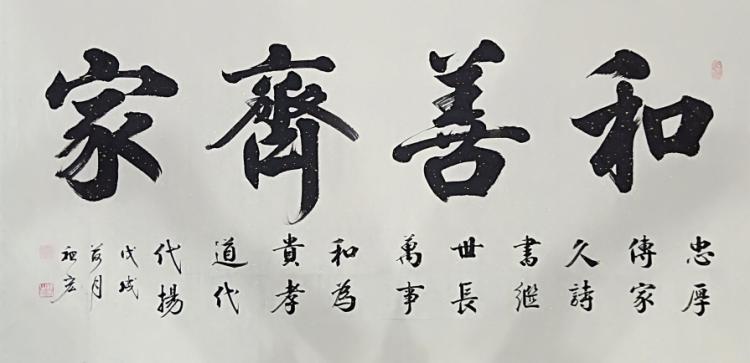 和善齊家
忠厚
傳家
久詩
書繼
世長
萬事
和為
貴孝
道代
代揚
戊戌
月